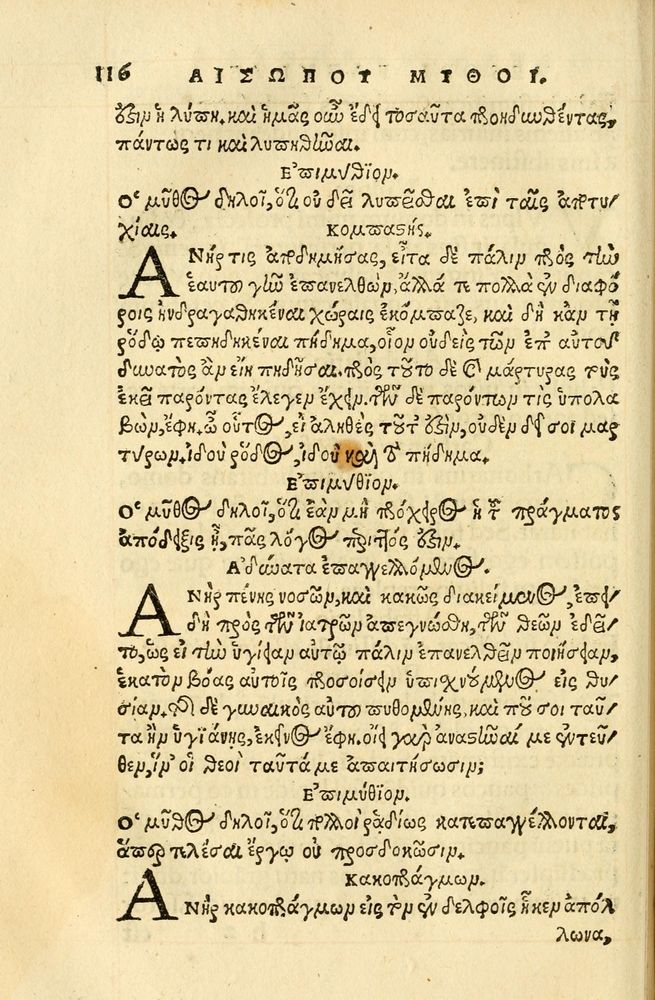 116 ΑΙΣΩΠΟΥ ΜΥΘΟΙ.
ἐστιν ἡ λύπη. καὶ ἡμᾶς οὖν ἔδει τοσαῦτα προηδυνθέντας,
πάντως τι καὶ λυπηθῆναι.
Ἐπιμύθιον.
Ὁ μῦθος δηλοῖ, ὅτι οὐ δεῖ λυπεῖσθαι ἐπὶ ταῖς ἀποτυ-
χίαις. Κομπαστής.
ΑΝήρ τις ἀποδημήσας, εἶτα δὲ πάλιν πρὸς τὴν
ἑαυτοῦ γῆν ἐπανελθών, ἄλλά τε πολλὰ ἐν διαφό
ροις ἠνδραγαθηκέναι χώραις ἐκόμπαζε, καὶ δὴ κἀν τῇ
ῥόδῳ πεπηδηκέναι πήδημα, οἷον οὐδεὶς τῶν ἐπ' αὐτοῦ
δυνατὸς ἂν εἴη πηδῆσαι. πρὸς τοῦτο δὲ καὶ μάρτυρας τοὺς
ἐκεῖ παρόντας ἔλεγεν ἔχειν. τῶν δὲ παρόντων τὶς ὑπολα
βών, ἔφη. ὦ οὗτος, εἰ ἀληθὲς τοῦτ' ἐστιν, οὐδὲν δεῖ σοι μαρ
τύρων. ἰδοὺ ῥόδος, ἰδοὺ καὶ τὸ πήδημα.
Ἐπιμύθιον.
Ὁ μῦθος δηλοῖ, ὅτι ἐὰν μὴ πρόχειρος ἡ τοῦ πράγματος
ἀπόδειξις ᾖ, πᾶς λόγος περιττός ἐστιν.
Ἀδύνατα ἐπαγγελλόμενος.
ΑΝὴρ πένης νοσῶν, καὶ κακῶς διακείμενος, ἐπει
δὴ πρὸς τῶν ἰατρῶν ἀπεγνώσθη, τῶν θεῶν ἐδεῖ
το, ὡς εἰ τὴν ὑγίειαν αὐτῷ πάλιν ἐπανελθεῖν ποιήσειαν,
ἑκατὸν βόας αὐτοῖς προσοίσειν ὑπισχνούμενος εἰς θυ-
σίαν. τῆς δὲ γυναικὸς αὐτοῦ πυθομένης, καὶ ποῦ σοι ταῦ-
τα ἢν ὑγιάνῃς, ἐκεῖνος ἔφη. οἴει γὰρ ἀναστῆναί με ἐντεῦ-
θεν, ἵν' οἱ θεοὶ ταῦτά με ἀπαιτήσωσιν;
Ἐπιμύθιον.
Ὁ μῦθος δηλοῖ, ὅτι πολλοὶ ῥᾳδίως κατεπαγγέλλονται,
ἅπερ τελέσαι ἔργῳ οὐ προσδοκῶσιν.
Κακοπράγμων.
ΑΝὴρ κακοπράγμων εἰς τὸν ἐν δελφοῖς ἧκεν ἀπόλ
λωνα,